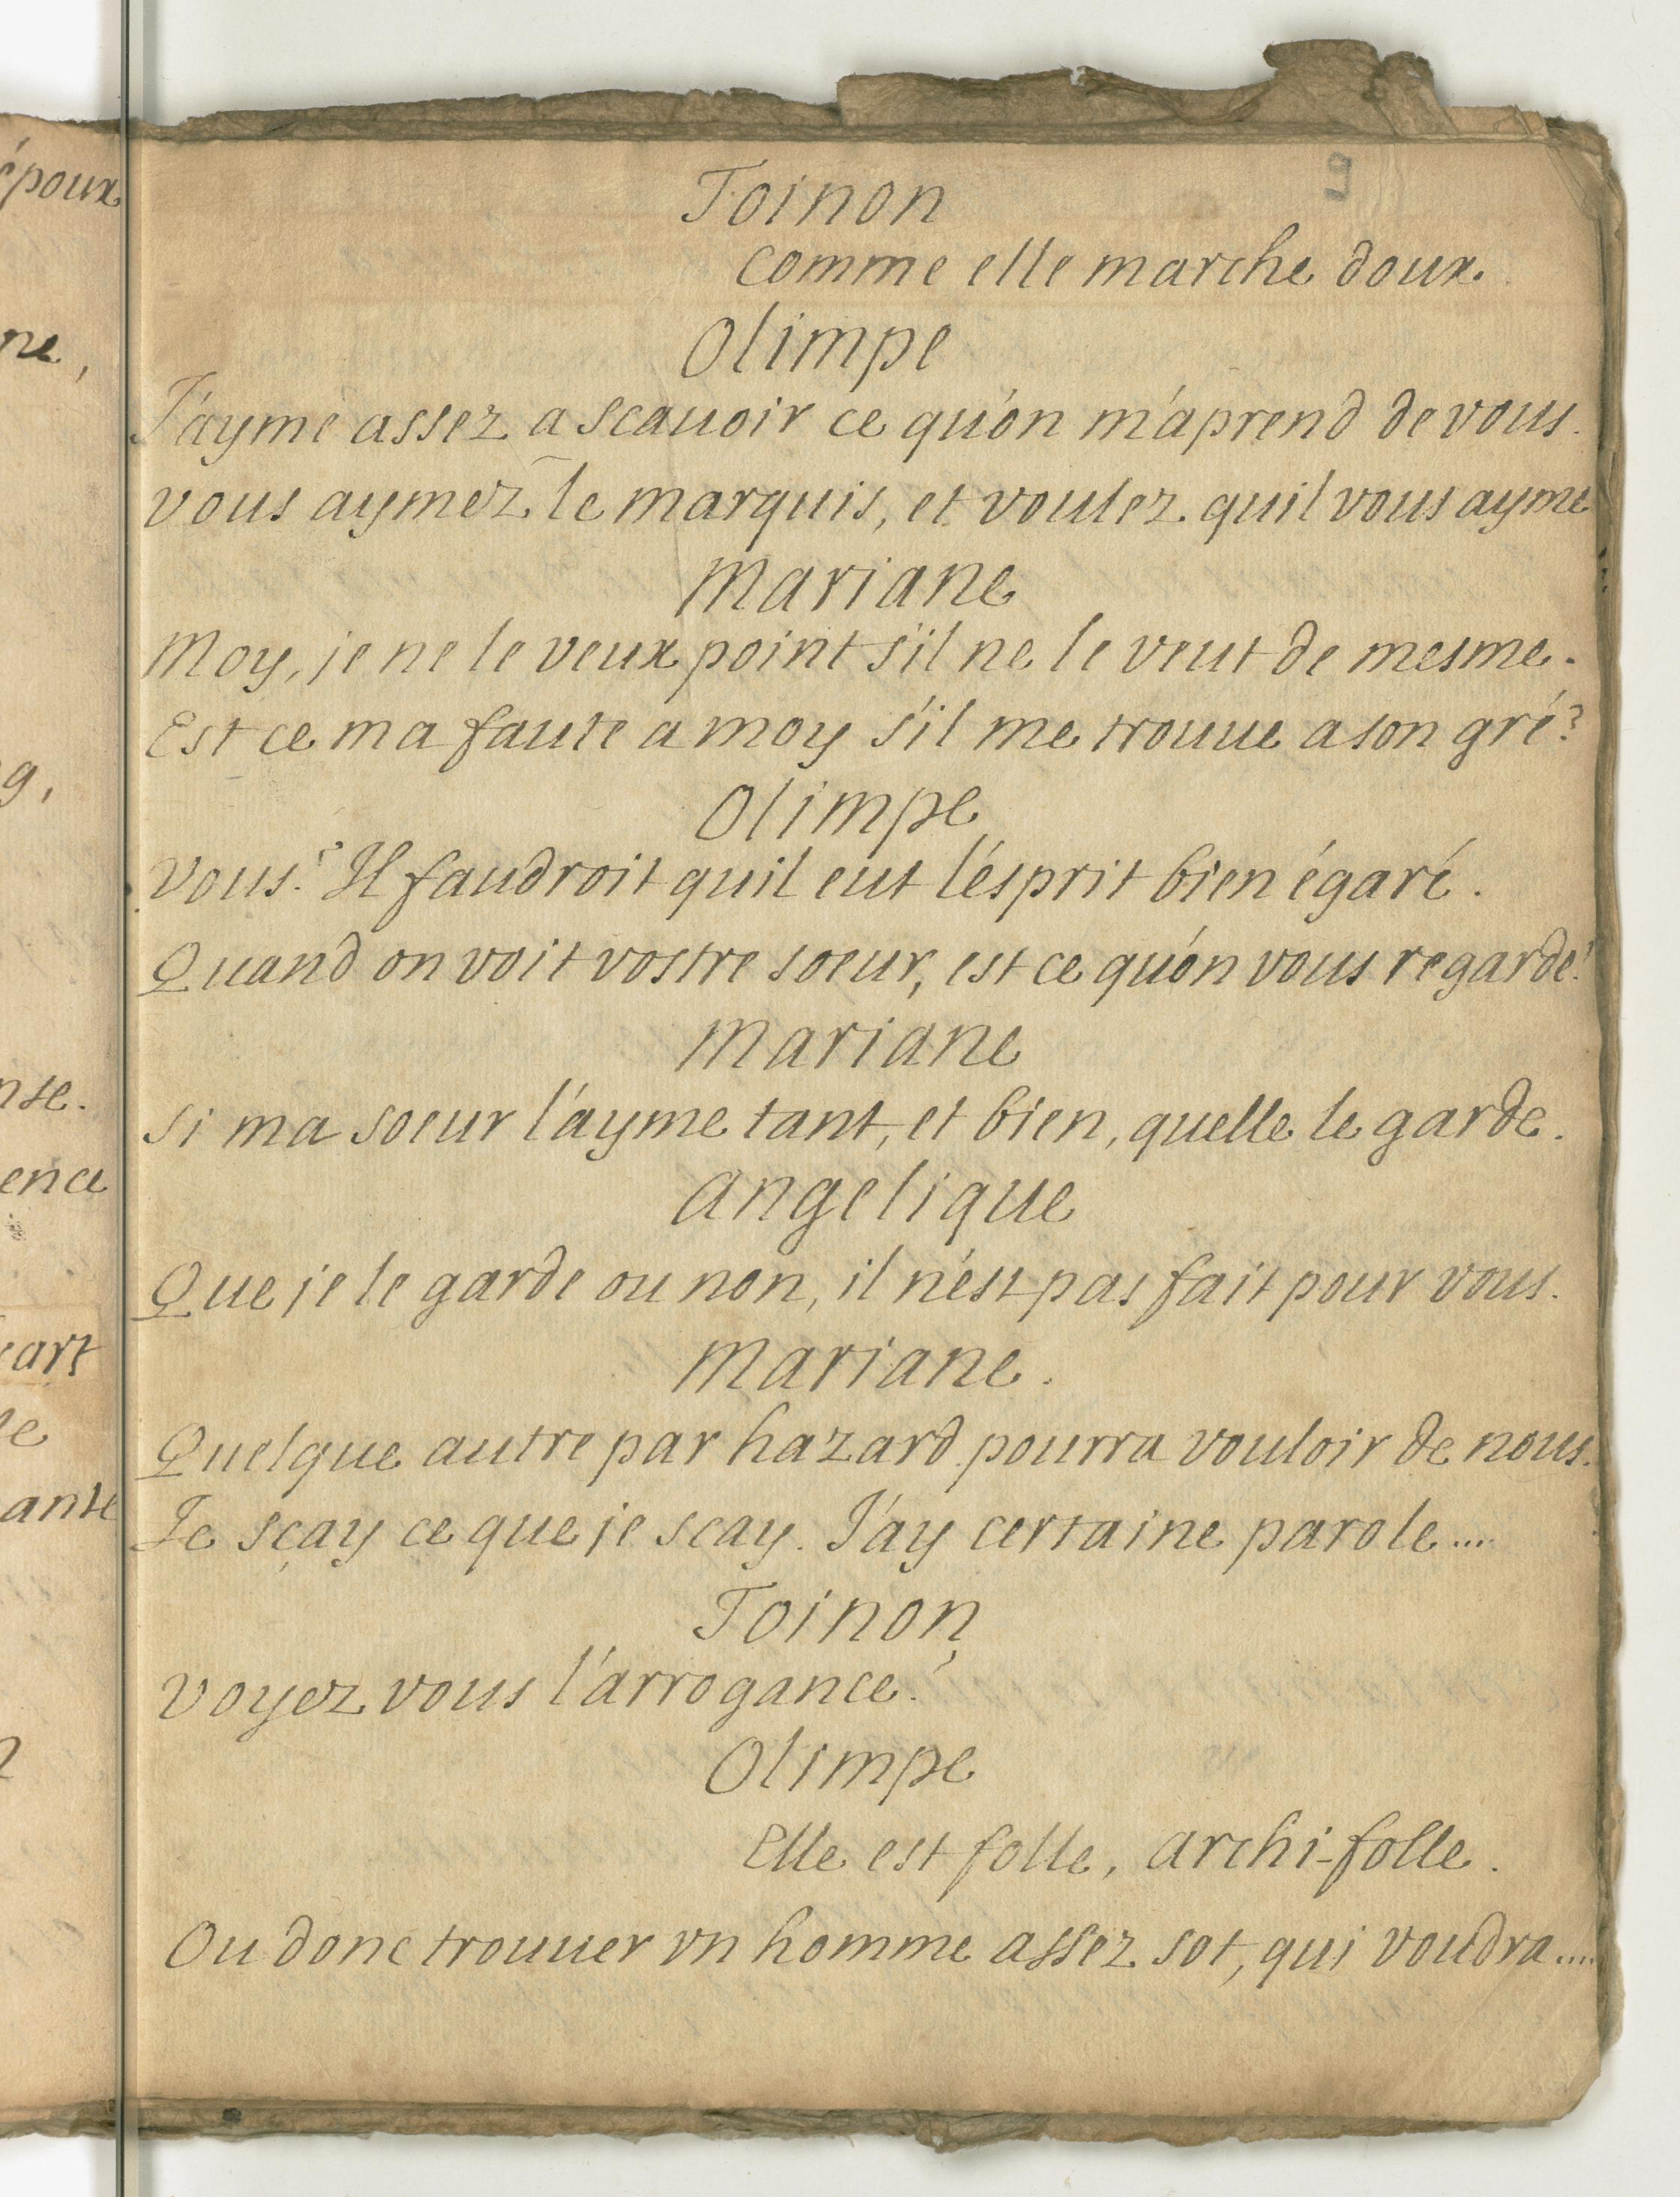 époux
ne,
g,
nse.
ence
art
le
ante
Toinon
comme elle marche doux.
Olimpe
J'ayme assez a scauoir ce qu'on m'aprend de vous.
vous aymez le marquis, et voulez quil vous ayme
Mariane
Moy, je ne le veux point s'il ne le veut de mesme.
Est ce ma faute a moy s'il me trouue a son gré?
Olimpe
vous? Il faudroit quil eut l'ésprit bien égaré.
Quand on voit vostre soeur, est ce qu'on vous regarde?
Mariane
si ma soeur l'ayme tant, et bien, quelle le garde.
angelique
Que je le garde ou non, il n'est pas fait pour vous.
Mariane.
Quelque autre par hazard pourra vouloir de nous.
Je sçay ce que je scay. J'ay certaine parole....
Toinon
voyez vous l'arrogance?
Olimpe
Elle est folle, archi-folle.
Ou donc trouuer vn homme assez sot, qui voudra....